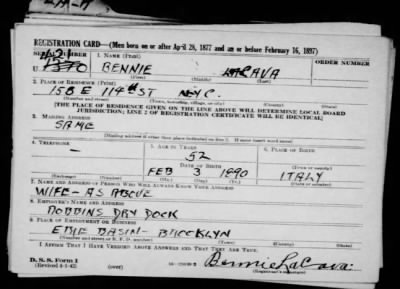 REGISTRATION CARD—(Men born on or after April 28, 1877 and on or before February 16, 1897)
SERIAL NUMBER
1. NAME (Print)
ORDER NUMBER
U.
BENNIE LaCAVA
(First) (Middle) (Last)
2. PLACE OF RESIDENCE (Print)
158 E 114th ST N.Y.C.
(Number and street) (Town, township, village, or city) (County) (State)
[THE PLACE OF RESIDENCE GIVEN ON THE LINE ABOVE WILL DETERMINE LOCAL BOARD
JURISDICTION; LINE 2 OF REGISTRATION CERTIFICATE WILL BE IDENTICAL]
3. MAILING ADDRESS
SAME
[Mailing address if other than place indicated on line 2. If same insert word same]
4. TELEPHONE
5. AGE IN YEARS
6. PLACE OF BIRTH
–
52
DATE OF BIRTH
(Town or county)
FEB 3 1890
ITALY
(Mo.) (Day) (Yr.)
(State or country)
7. NAME AND ADDRESS OF PERSON WHO WILL ALWAYS KNOW YOUR ADDRESS
WIFE - AS ABOVE
8. EMPLOYER'S NAME AND ADDRESS
ROBBINS DRY DOCK
9. PLACE OF EMPLOYMENT OR BUSINESS
ERIE BASIN - BROOKLYN
(Number and street or R. F. D. number) (Town) (County) (State)
I AFFIRM THAT I HAVE VERIFIED ABOVE ANSWERS AND THAT THEY ARE TRUE.
D. S. S. Form 1
(Revised 4-1-42) (over)
Bennie LaCava
(Registrant's signature)